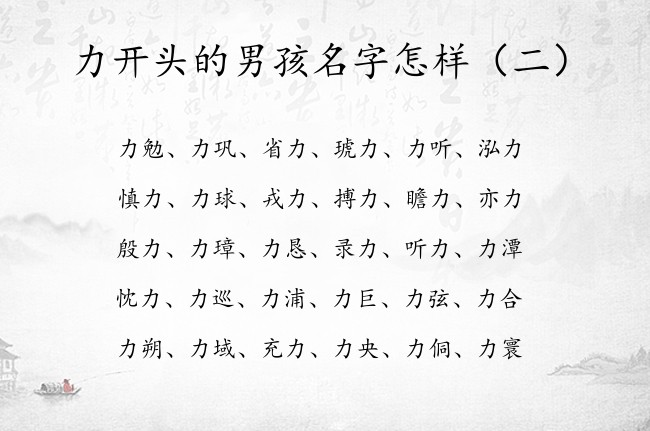 力开头的男孩名字怎样（二）
力勉、力巩、省力、琥力、力听、泓力
慎力、力球、戎力、搏力、瞻力、亦力
殷力、力璋、力恳、录力、听力、力潭
忱力、力巡、力浦、力巨、力弦、力合
力朔、力域、充力、力央、力侗、力寰